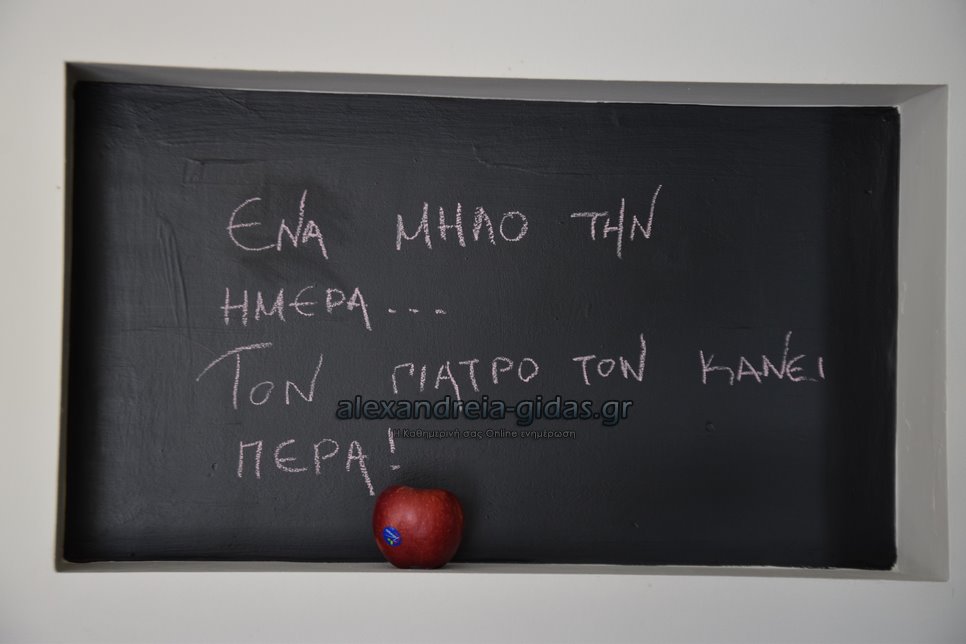 ΕΝΑ ΜΗΛΟ ΤΗΝ
ΗΜΕΡΑ...
ΤΟΝ ΓΙΑΤΡΟ ΤΟΝ ΚΑΝΕΙ
alexandreia-gidas.gr
Η Καθημερινή σας Online ενημέρωση
ΠΕΡΑ!